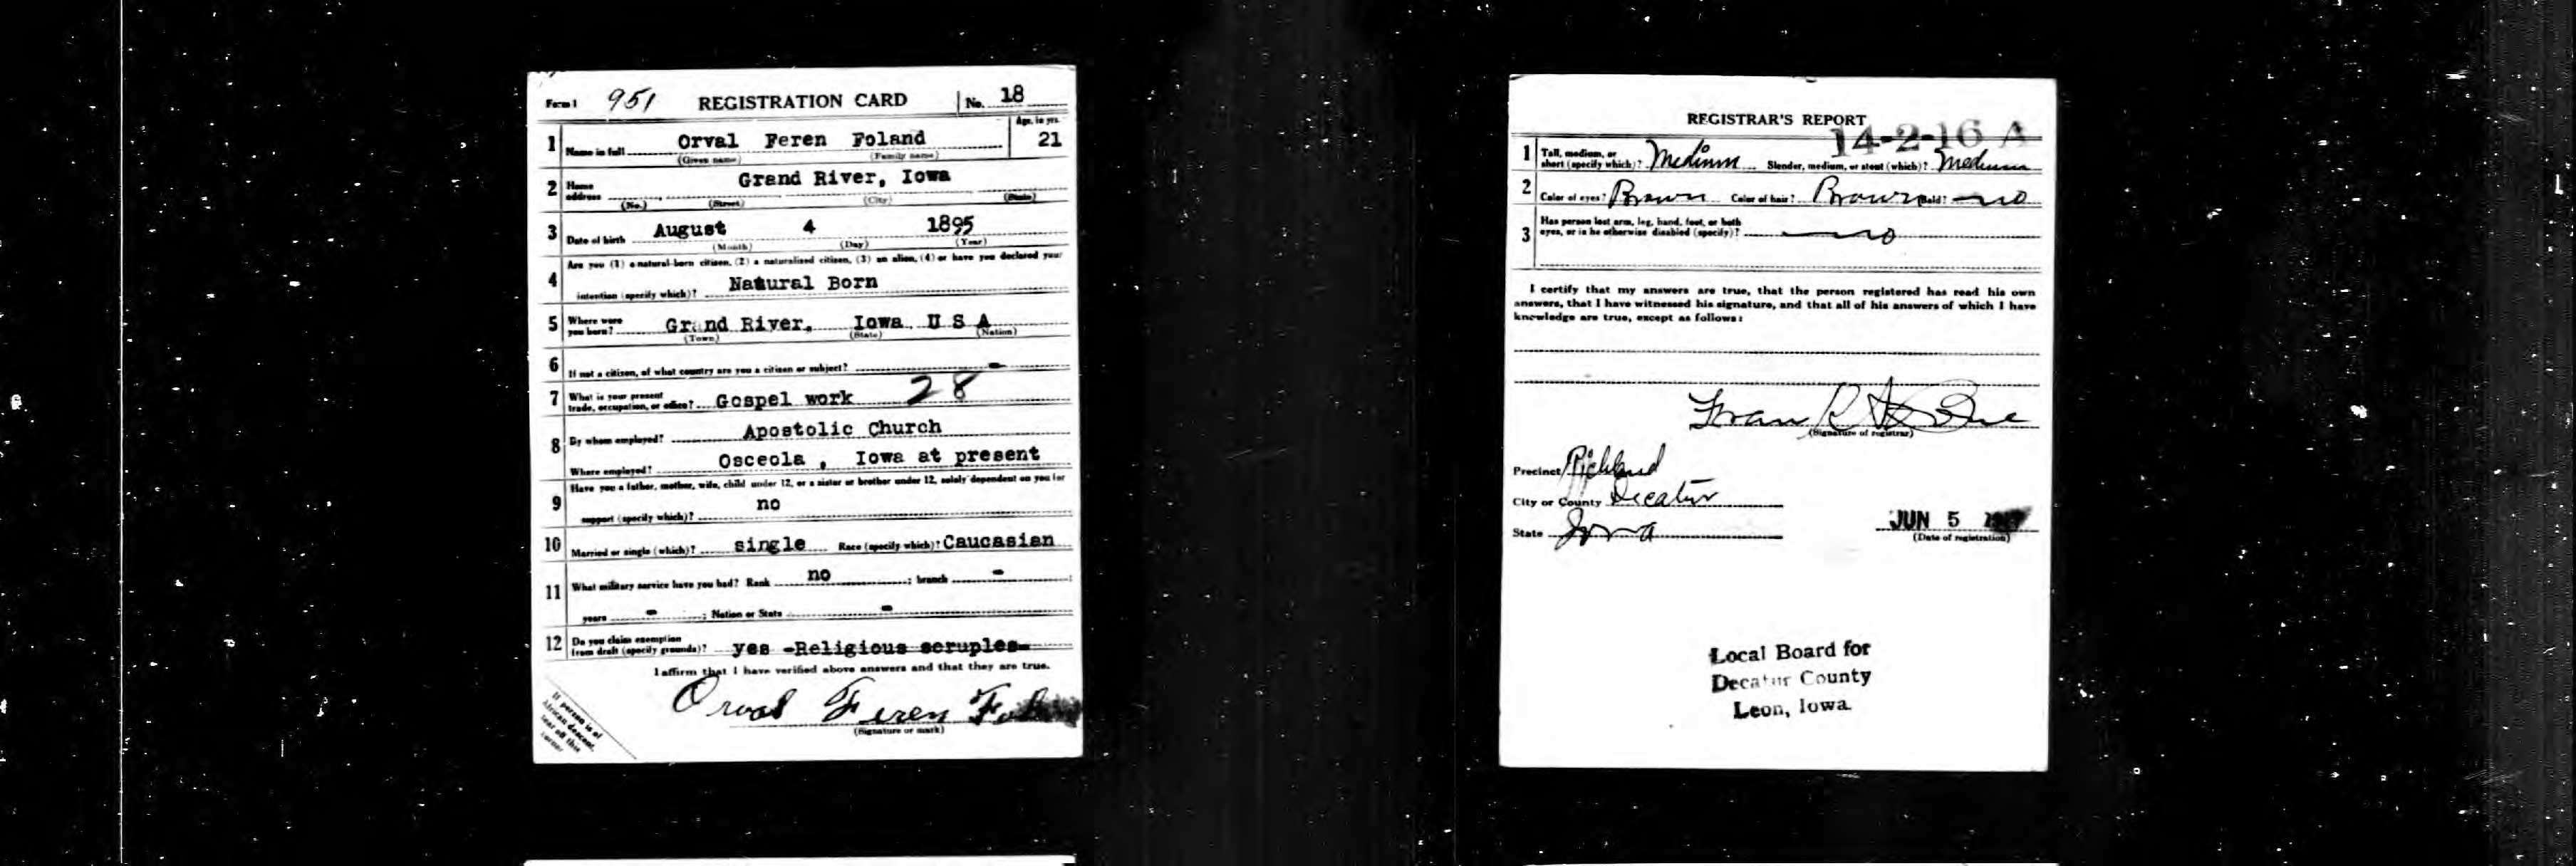 Form 1 951 REGISTRATION CARD No. 18
Age, in yrs.
1 Name in full Orval Feren Foland 21
(Given name) (Family name)
2 Home address Grand River, Iowa
(No.) (Street) (City) (State)
3 Date of birth August 4 1895
(Month) (Day) (Year)
Are you (1) a natural-born citizen, (2) a naturalized citizen, (3) an alien, (4) or have you declared your
4 intention (specify which)? Natural Born
5 Where were you born? Grand River, Iowa U S A
(Town) (State) (Nation)
6 If not a citizen, of what country are you a citizen or subject? -
7 What is your present trade, occupation, or office? Gospel work 28
8 By whom employed? Apostolic Church
Where employed? Osceola , Iowa at present
Have you a father, mother, wife, child under 12, or a sister or brother under 12, solely dependent on you for
9 support (specify which)? no
10 Married or single (which)? single Race (specify which)? Caucasian
11 What military service have you had? Rank no ; branch - ;
years - ; Nation or State -
12 Do you claim exemption from draft (specify grounds)? yes -Religious scruples-
I affirm that I have verified above answers and that they are true.
Orval Feren
(Signature or mark)
If person is of
African descent,
tear off this
corner
REGISTRAR'S REPORT
14-2-16 A
1 Tall, medium, or short (specify which)? Medium Slender, medium, or stout (which)? Medium
2 Color of eyes? Brown Color of hair? Brown Bald? no
Has person lost arm, leg, hand, foot, or both
3 eyes, or is he otherwise disabled (specify)? no
I certify that my answers are true, that the person registered has read his own
answers, that I have witnessed his signature, and that all of his answers of which I have
knowledge are true, except as follows:
(Signature of registrar)
Precinct Richland
City or County Decatur
State Iowa
JUN 5
(Date of registration)
Local Board for
Decatur County
Leon, Iowa.